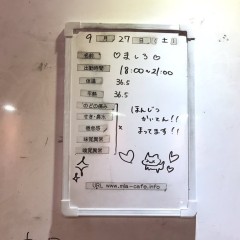 9月27日(土)
名前 ♡ましろ♡
出勤時間 18:00~21:00
体温 36.5
平熱 36.5
のどの痛み
せき・鼻水
倦怠感 ×
味覚異常
嗅覚異常
ほんじつ
かいてん!!
まってます!!